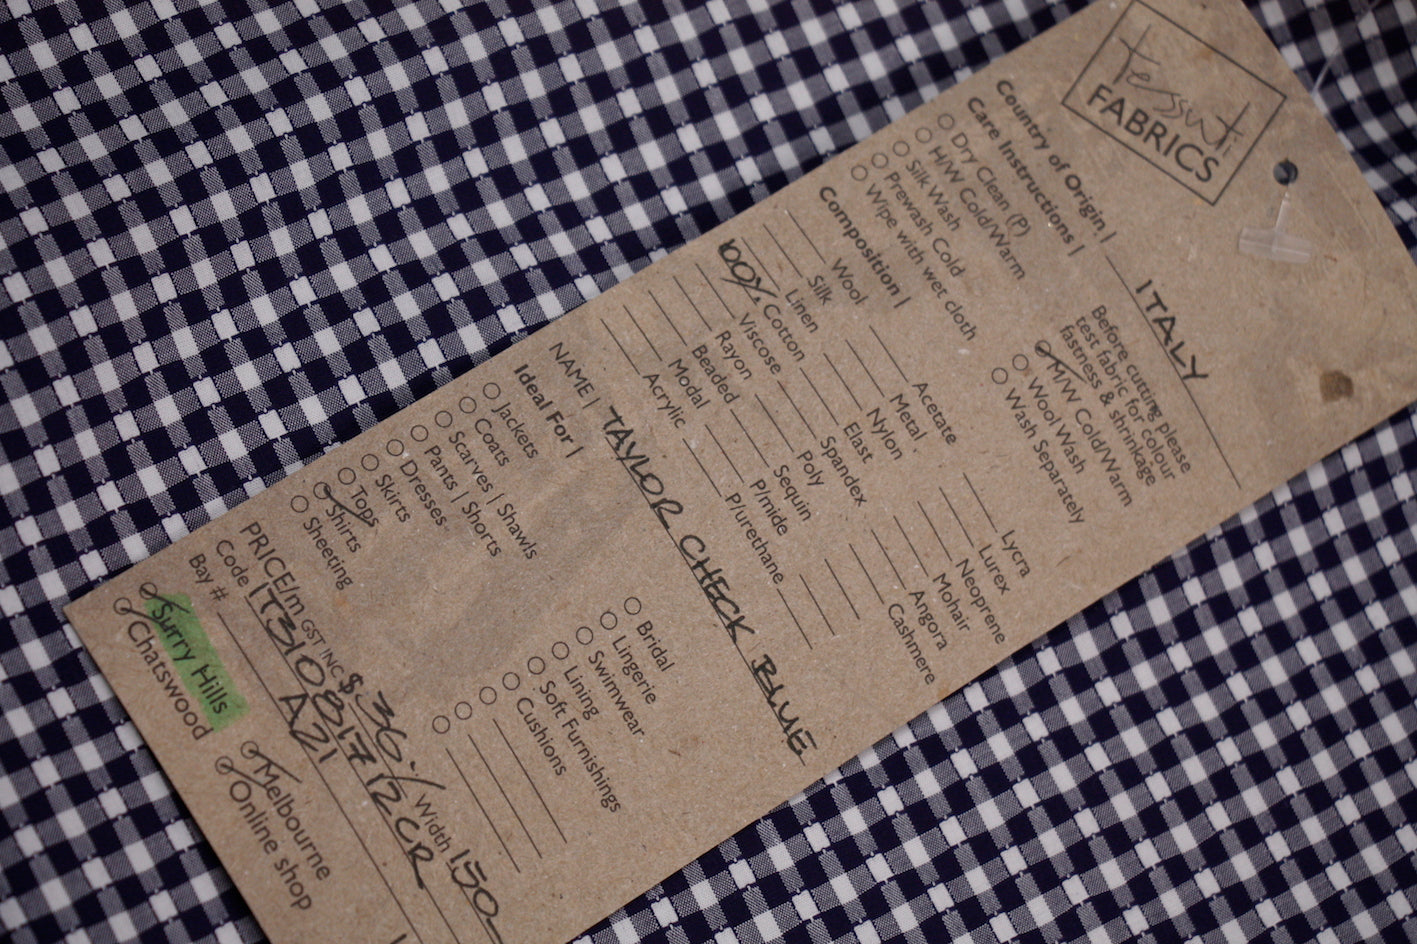 Tessuti
FABRICS
Country of Origin | ITALY
Care Instructions |
Before cutting please
test fabric for colour
fastness & shrinkage
Dry Clean (P)
H/W Cold/Warm
Silk Wash
Prewash Cold
Wipe with wet cloth
M/W Cold/Warm
Wool Wash
Wash Separately
Composition |
Wool
Silk
Linen
100% Cotton
Viscose
Rayon
Beaded
Modal
Acrylic
Acetate
Metal
Nylon
Elast
Spandex
Poly
Sequin
P/mide
P/urethane
Lycra
Lurex
Neoprene
Mohair
Angora
Cashmere
NAME | TAYLOR CHECK BLUE
Ideal For |
Jackets
Coats
Scarves | Shawls
Pants | Shorts
Dresses
Skirts
Tops
Shirts
Sheeting
Bridal
Lingerie
Swimwear
Lining
Soft Furnishings
Cushions
PRICE/m GST INC $ 36 Width 150
Code
Bay # A21
Surry Hills
Chatswood
Melbourne
Online shop